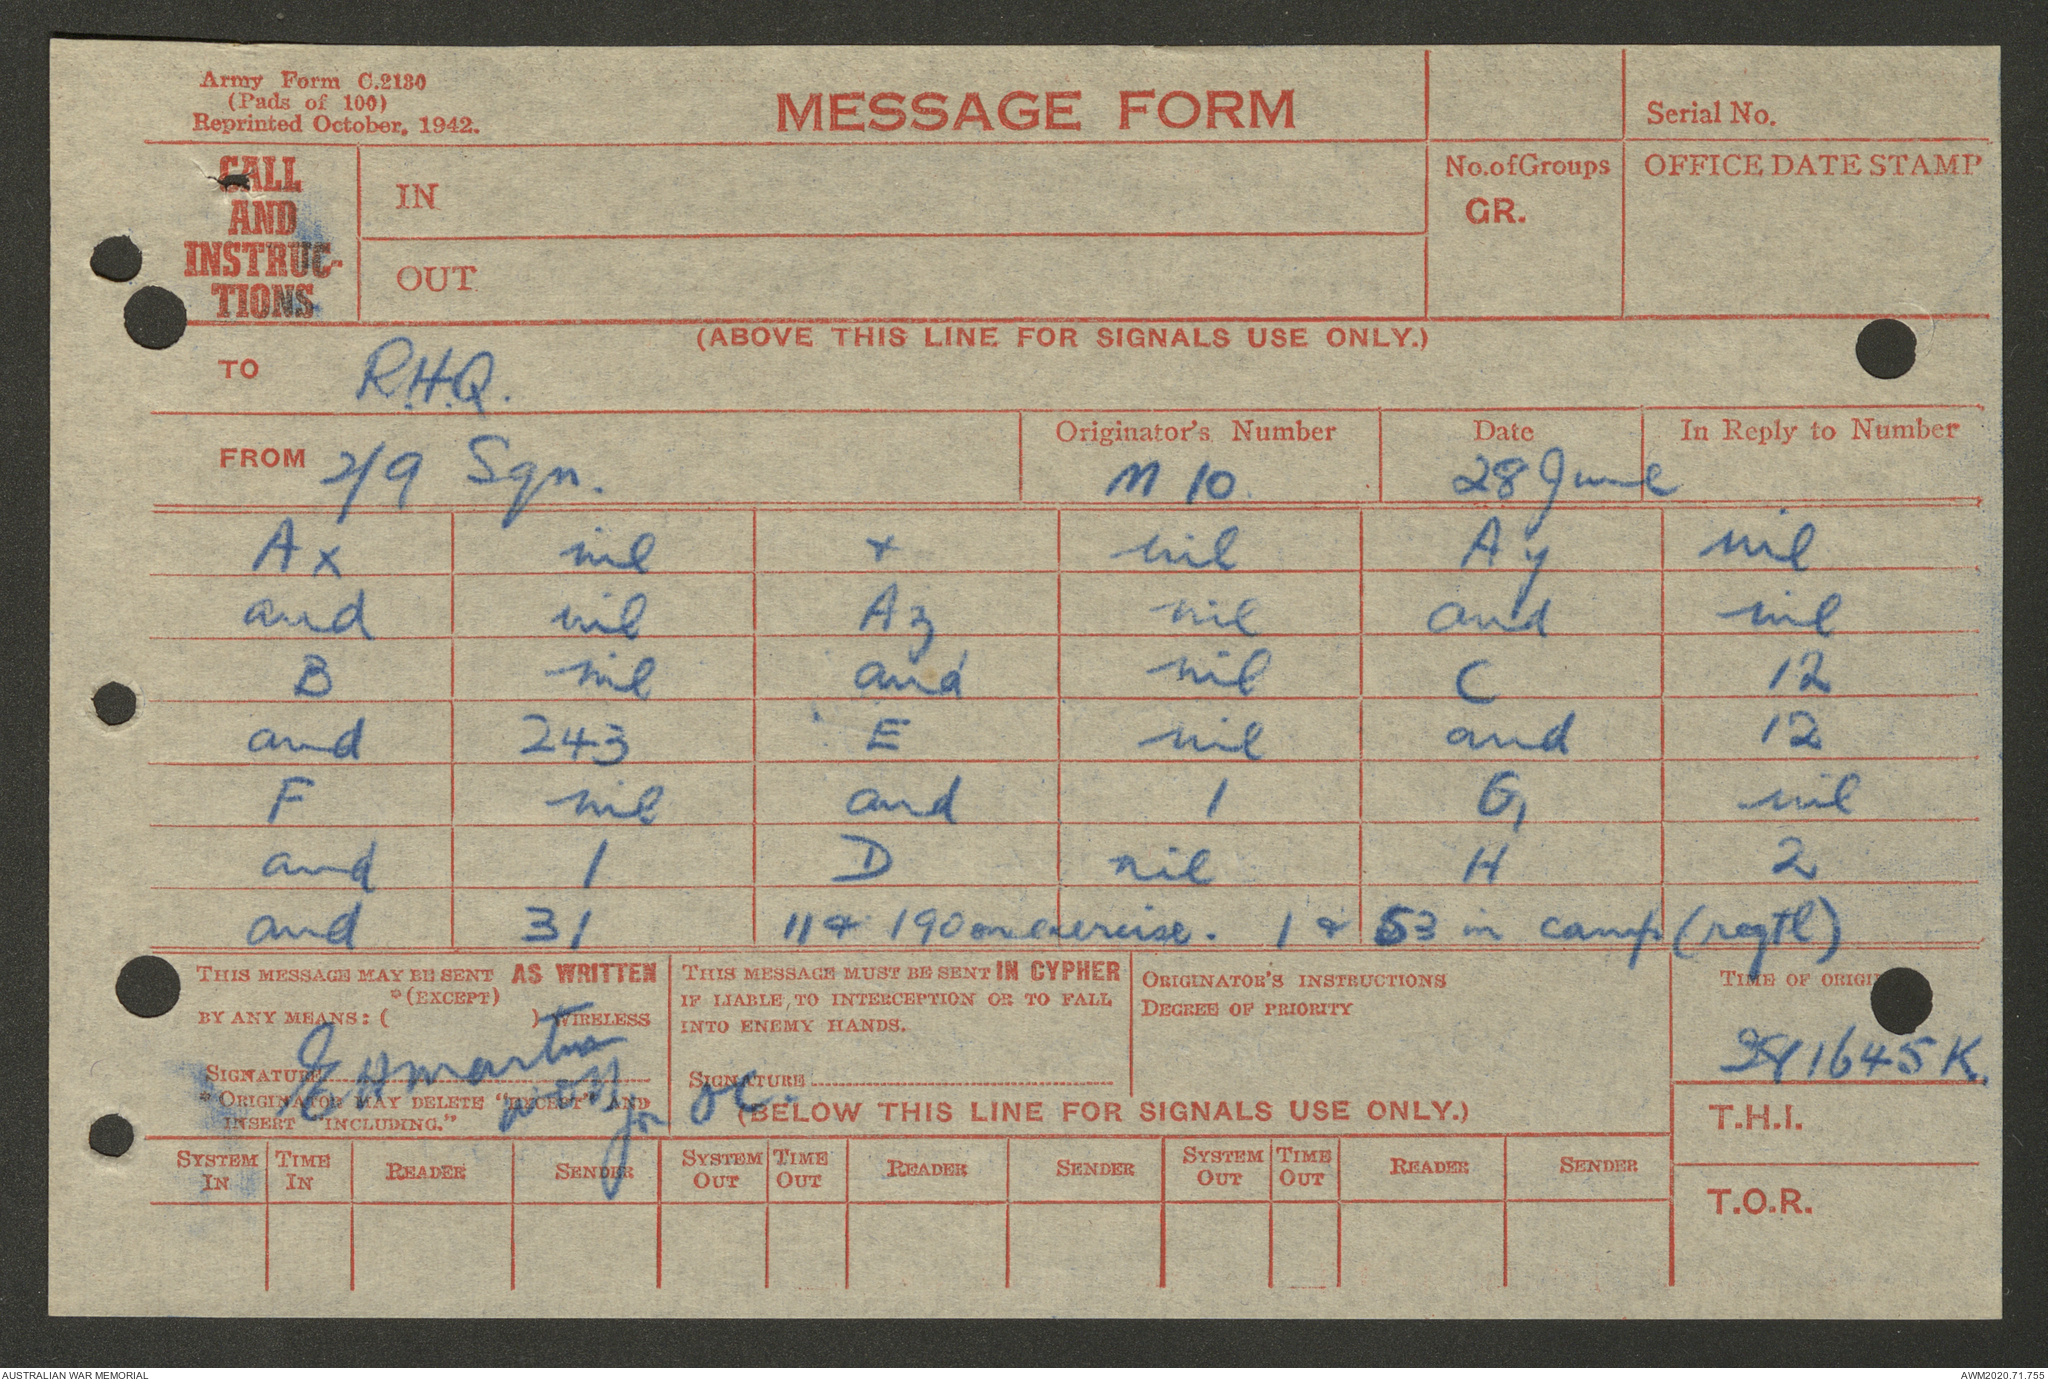 Army Form C.2130
(Pads of 100)
Reprinted October, 1942.
MESSAGE FORM
Serial No.
CALL
AND
INSTRUC-
TIONS
IN
OUT
No. of Groups
GR.
OFFICE DATE STAMP
(ABOVE THIS LINE FOR SIGNALS USE ONLY.)
TO R.H.Q.
FROM 2/9 Sqn.
Originator's Number
M 10
Date
28 June
In Reply to Number
Ax nil + nil Ay nil
and nil Az nil and nil
B nil and nil C 12
and 243 E nil and 12
F nil and 1 G nil
and 1 D nil H 2
and 31 11 & 190 on exercise. 1 & 53 in camp (regtl)
THIS MESSAGE MAY BE SENT AS WRITTEN
*(EXCEPT)
BY ANY MEANS: ( ) WIRELESS
SIGNATURE
* ORIGINATOR MAY DELETE "EXCEPT" AND
INSERT "INCLUDING."
for OC.
THIS MESSAGE MUST BE SENT IN CYPHER
IF LIABLE, TO INTERCEPTION OR TO FALL
INTO ENEMY HANDS.
SIGNATURE
ORIGINATOR'S INSTRUCTIONS
DEGREE OF PRIORITY
TIME OF ORIGI
281645K
T.H.I.
T.O.R.
(BELOW THIS LINE FOR SIGNALS USE ONLY.)
SYSTEM IN TIME IN READER SENDER SYSTEM OUT TIME OUT READER SENDER SYSTEM OUT TIME OUT READER SENDER
AUSTRALIAN WAR MEMORIAL
AWM2020.71.755